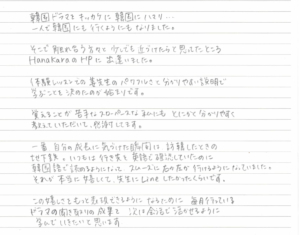 韓国ドラマをキッカケに韓国にハマり…
一人で韓国にも行くようにもなりました。
そこで
少しでも近づけたらと思ってたところ
HanakaraのHPに出逢いました。
体験レッスンでの先生の
分かりやすい説明で
学ぶことを決めたのが始まりです。
覚えることが苦手なスローペースな私にも とにかく分かりやすく
教えていただいて、感謝してます。
一番 自分の成長に気づけた瞬間は 訪韓したときの
地下鉄。いつもは行き先を英語で確認していたのに
韓国語で読めるようになって スムーズに
行けるようになっていました。
それが本当に嬉しくて、先生にLineしたかったくらいです。
この嬉しさをもっと
できるように
毎月行っている
ドラマの
成果と 次は会話が
学んでいきたいと思います